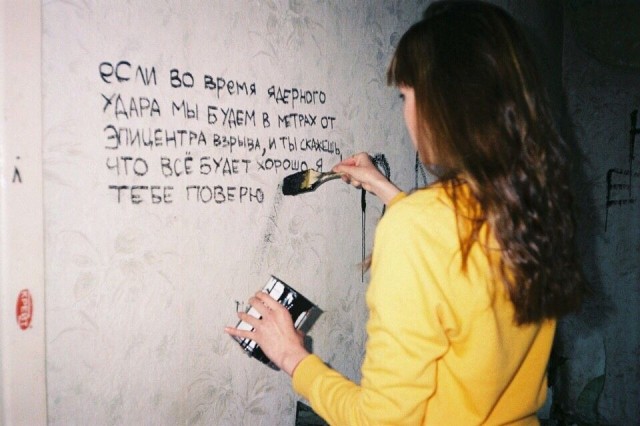 если во время ядерного
удара мы будем в метрах от
эпицентра взрыва, и ты скажешь,
что всё будет хорошо, я
тебе поверю